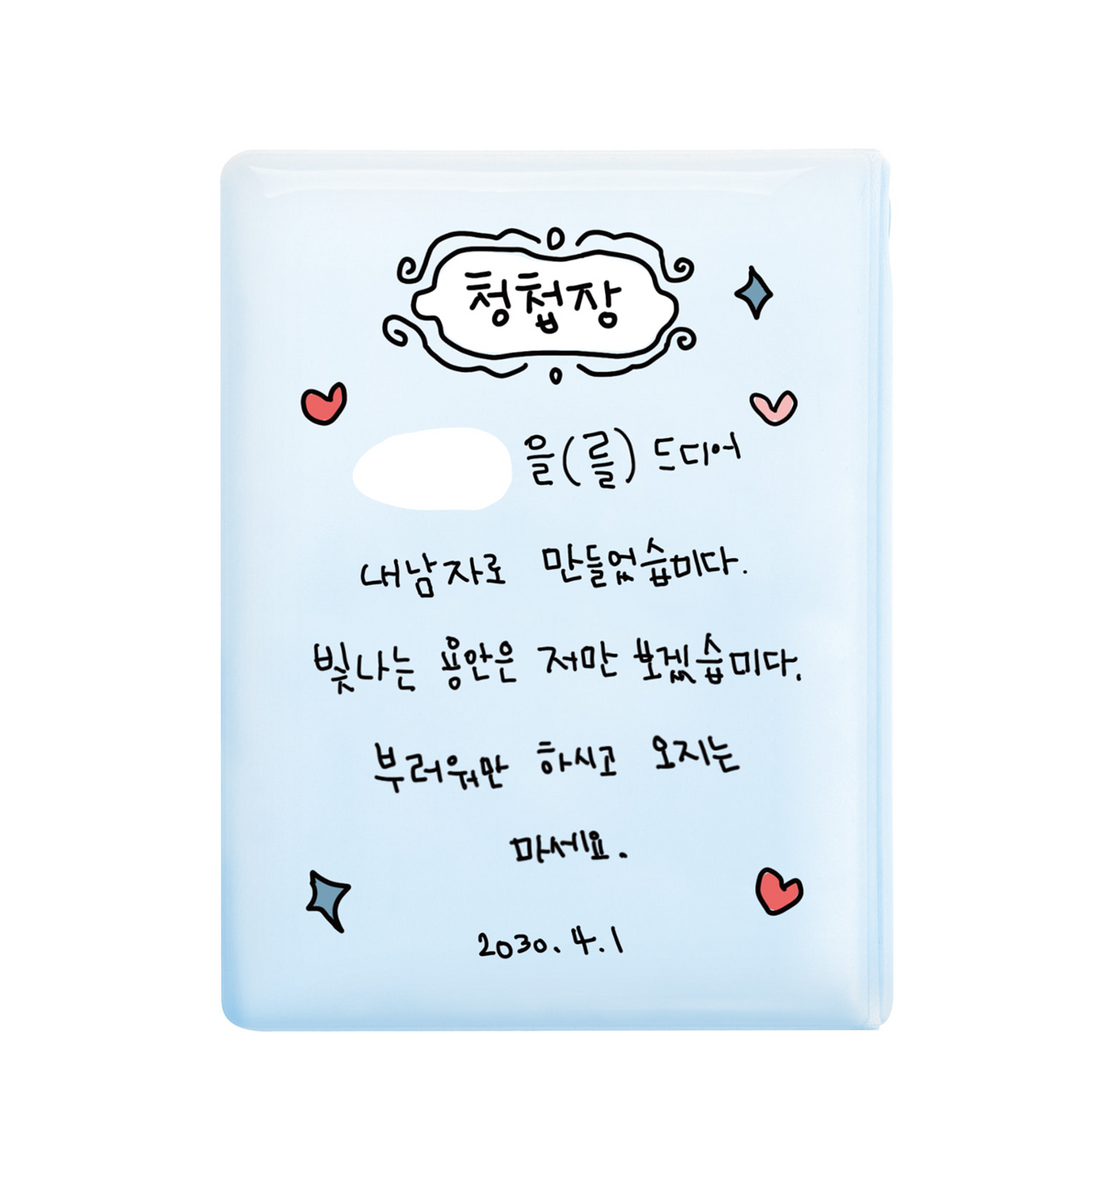 청첩장
을(를) 드디어
내남자로 만들었습미다.
빛나는 용안은 저만 보겠습미다.
부러워만 하시고 오지는
마세요.
2030.4.1